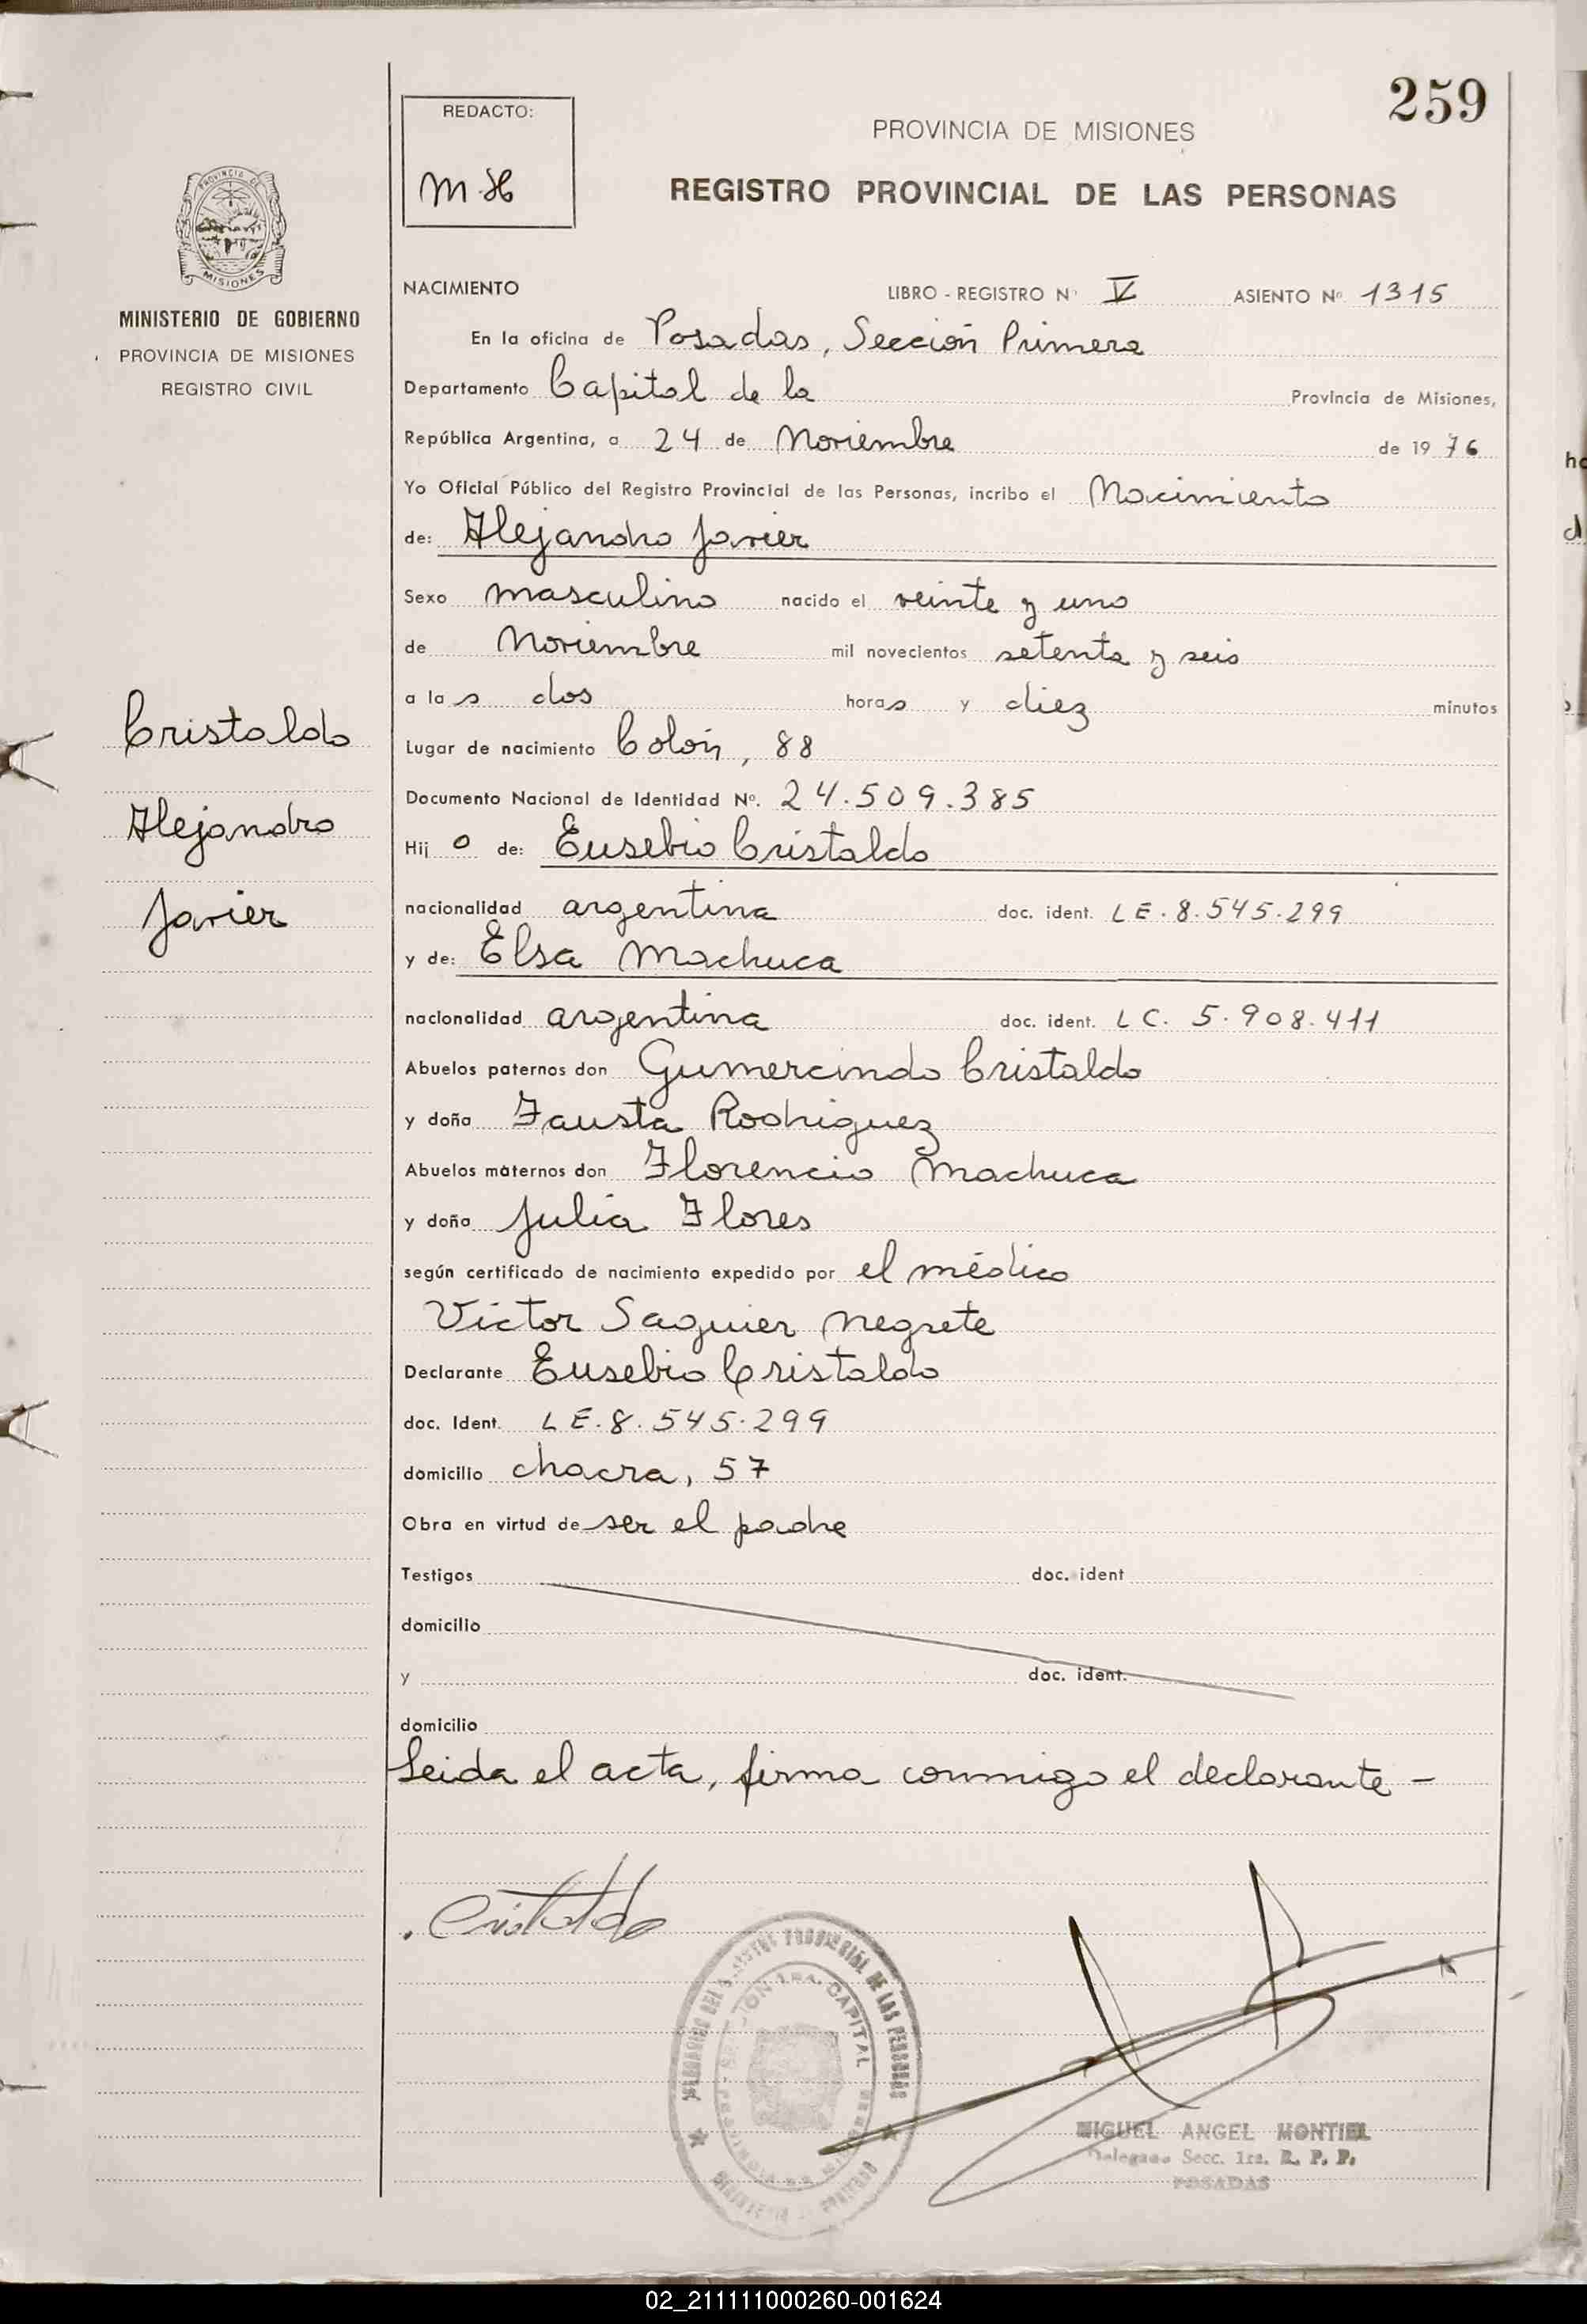 259
REDACTO:
M.H
PROVINCIA DE MISIONES
REGISTRO PROVINCIAL DE LAS PERSONAS
PROVINCIA DE
MISIONES
MINISTERIO DE GOBIERNO
PROVINCIA DE MISIONES
REGISTRO CIVIL
NACIMIENTO LIBRO - REGISTRO Nº V ASIENTO Nº 1315
En la oficina de Posadas, Sección Primera
Departamento Capital de la Provincia de Misiones,
República Argentina, a 24 de Noviembre de 1976
Yo Oficial Público del Registro Provincial de las Personas, incribo el Nacimiento
de: Alejandro Javier
Sexo masculino nacido el veinte y uno
de Noviembre mil novecientos setenta y seis
a las dos horas y diez minutos
Lugar de nacimiento Colón, 88
Documento Nacional de Identidad Nº. 24.509.385
Hijo de: Eusebio Cristaldo
nacionalidad argentina doc. ident. LE.8.545.299
y de: Elsa Machuca
nacionalidad argentina doc. ident. LC. 5.908.411
Abuelos paternos don Gumercindo Cristaldo
y doña Fausta Rodriguez
Abuelos maternos don Florencio Machuca
y doña Julia Flores
según certificado de nacimiento expedido por el médico
Victor Saguier Negrete
Declarante Eusebio Cristaldo
doc. Ident. LE.8.545.299
domicilio chacra, 57
Obra en virtud de ser el padre
Testigos doc. ident
domicilio
y doc. ident.
domicilio
Leida el acta, firma conmigo el declarante -
Cristaldo
Alejandro
Javier
Cristaldo
REGISTRO PROVINCIAL DE LAS PERSONAS
CAPITAL
MIGUEL ANGEL MONTIEL
Delegado Secc. 1ra. R. P. P.
POSADAS
02_211111000260-001624